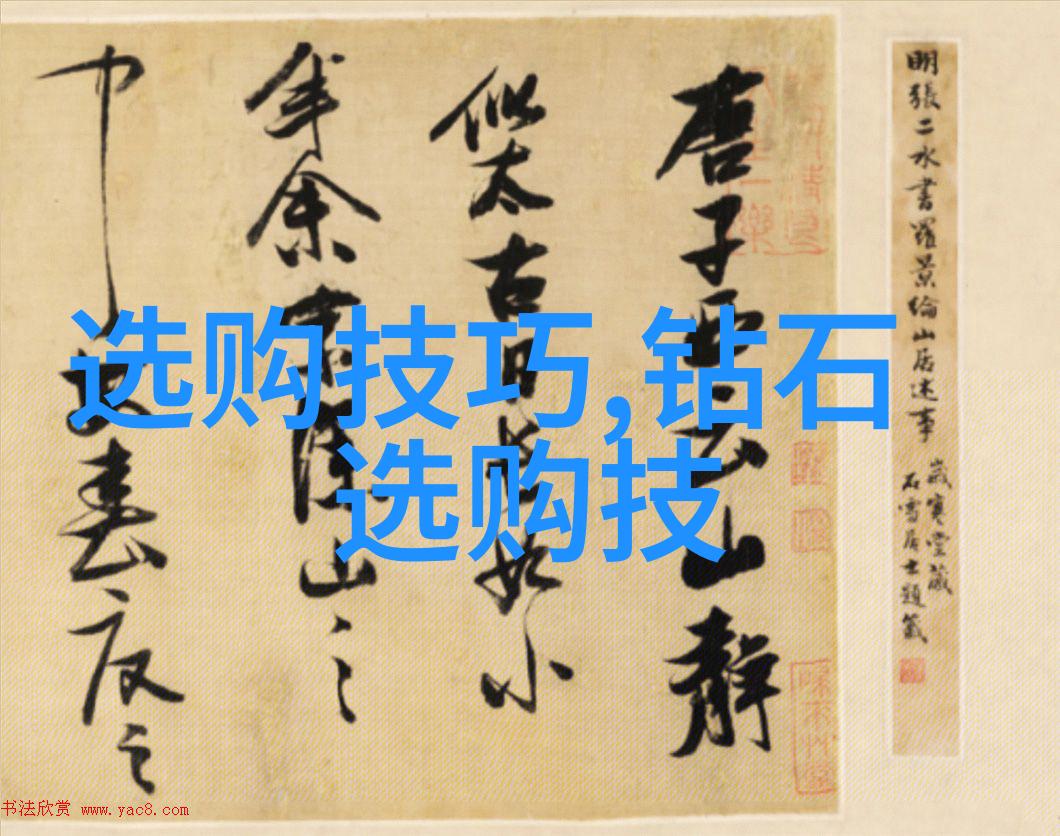 选购技巧,钻石
选购技
唐子西云山靜
似太古日長如小
年余家深山之
中每春夏之
明張二水書羅景綸山居述事
歲寒堂藏
石雪居士題籤
书法欣赏 www.yac8.com